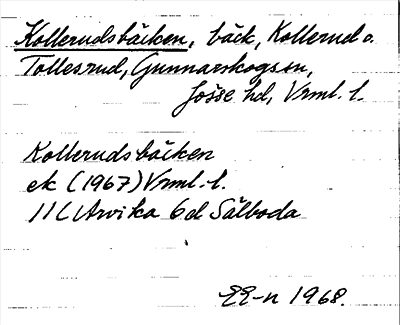 Kollerudsbäcken, bäck, Kollerud o.
Tollesrud, Gunnarskogs sn,
Jösse hd, Vrml. l.
Kollerudsbäcken
ek (1967) Vrml. l.
11C Arvika 6d Sälboda
EE-n 1968.